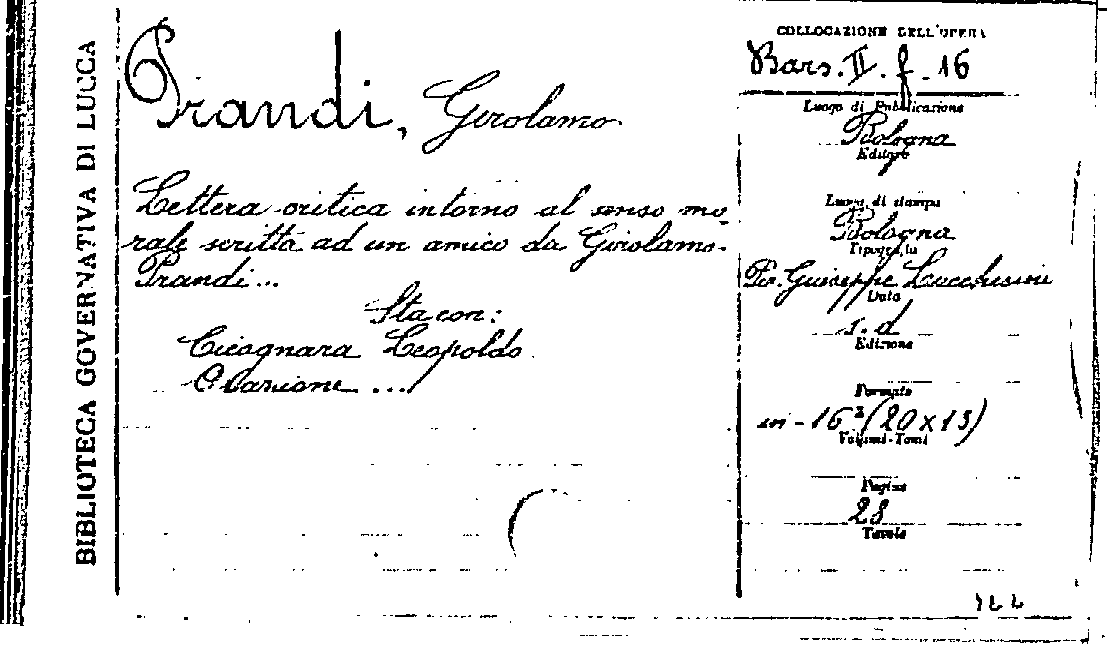 BIBLIOTECA GOVERNATIVA DI LUCCA
Prandi, Girolamo
Lettera critica intorno al senso mo-
rale scritta ad un amico da Girolamo
Prandi...
Sta con:
Cicognara Leopoldo
Orazione ...
COLLOCAZIONE DELL'OPERA
Bars. II. f. 16
Luogo di Pubblicazione
Bologna
Editore
Luogo di stampa
Bologna
Tipografia
Per Giuseppe Lucchesini
Data
s. d
Edizione
Formato
in-16° (20x13)
Volumi-Tomi
Pagine
28
Tavole